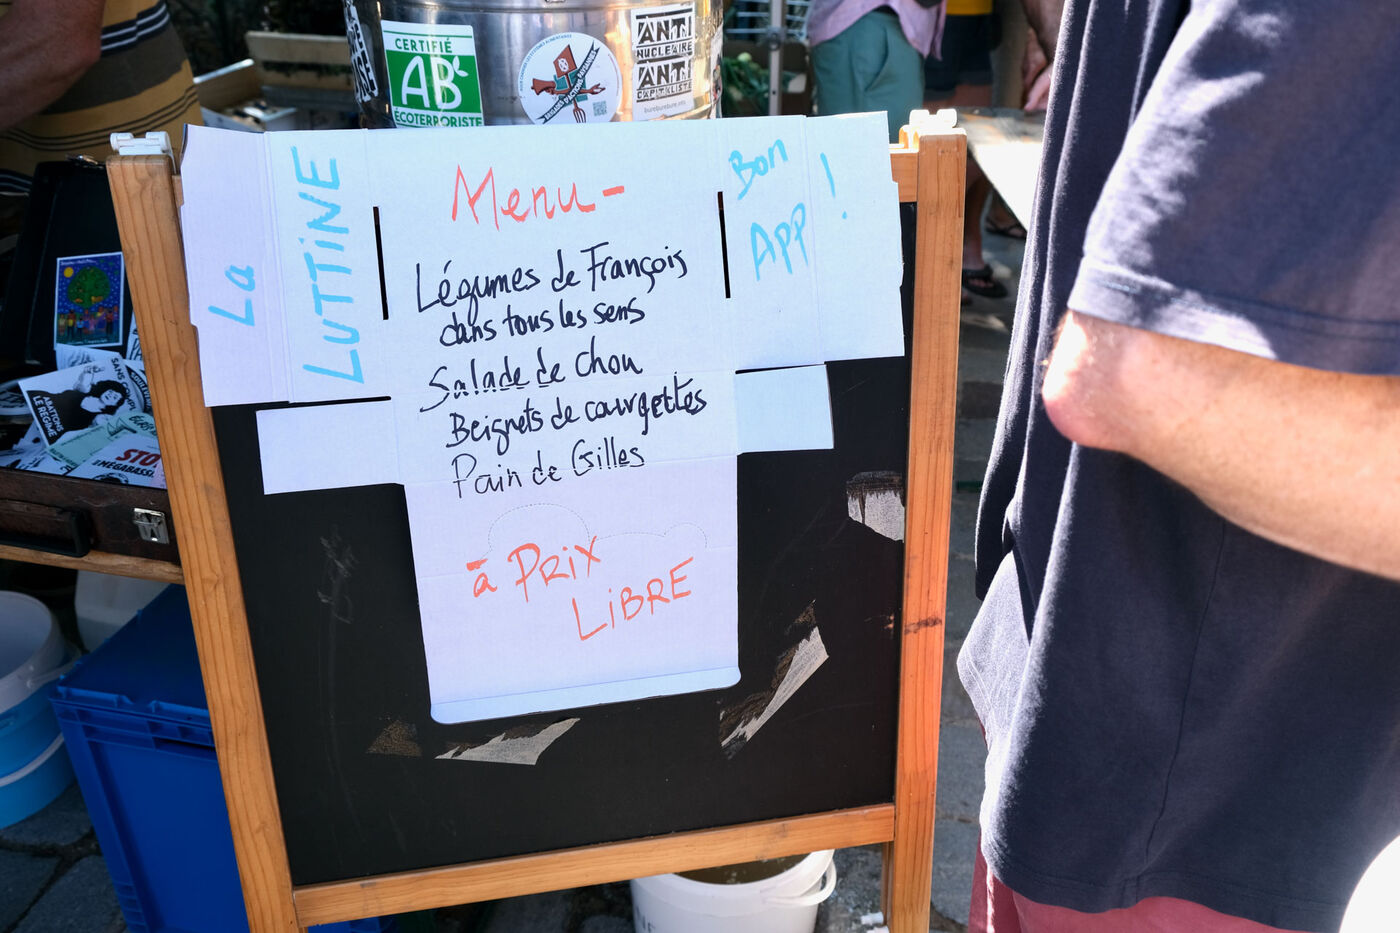 CERTIFIÉ
AB
ÉCOTERRORISTE
ANTI
NUCLÉAIRE
ANTI
CAPITALISTE
bureburebure.info
La
LUTTINE
Menu-
Légumes de François
dans tous les sens
Salade de chou
Beignets de courgettes
Pain de Gilles
à PRIX
LIBRE
Bon
APP !
ABATTONS
LE RÉGIME
STO
MÉGABASS